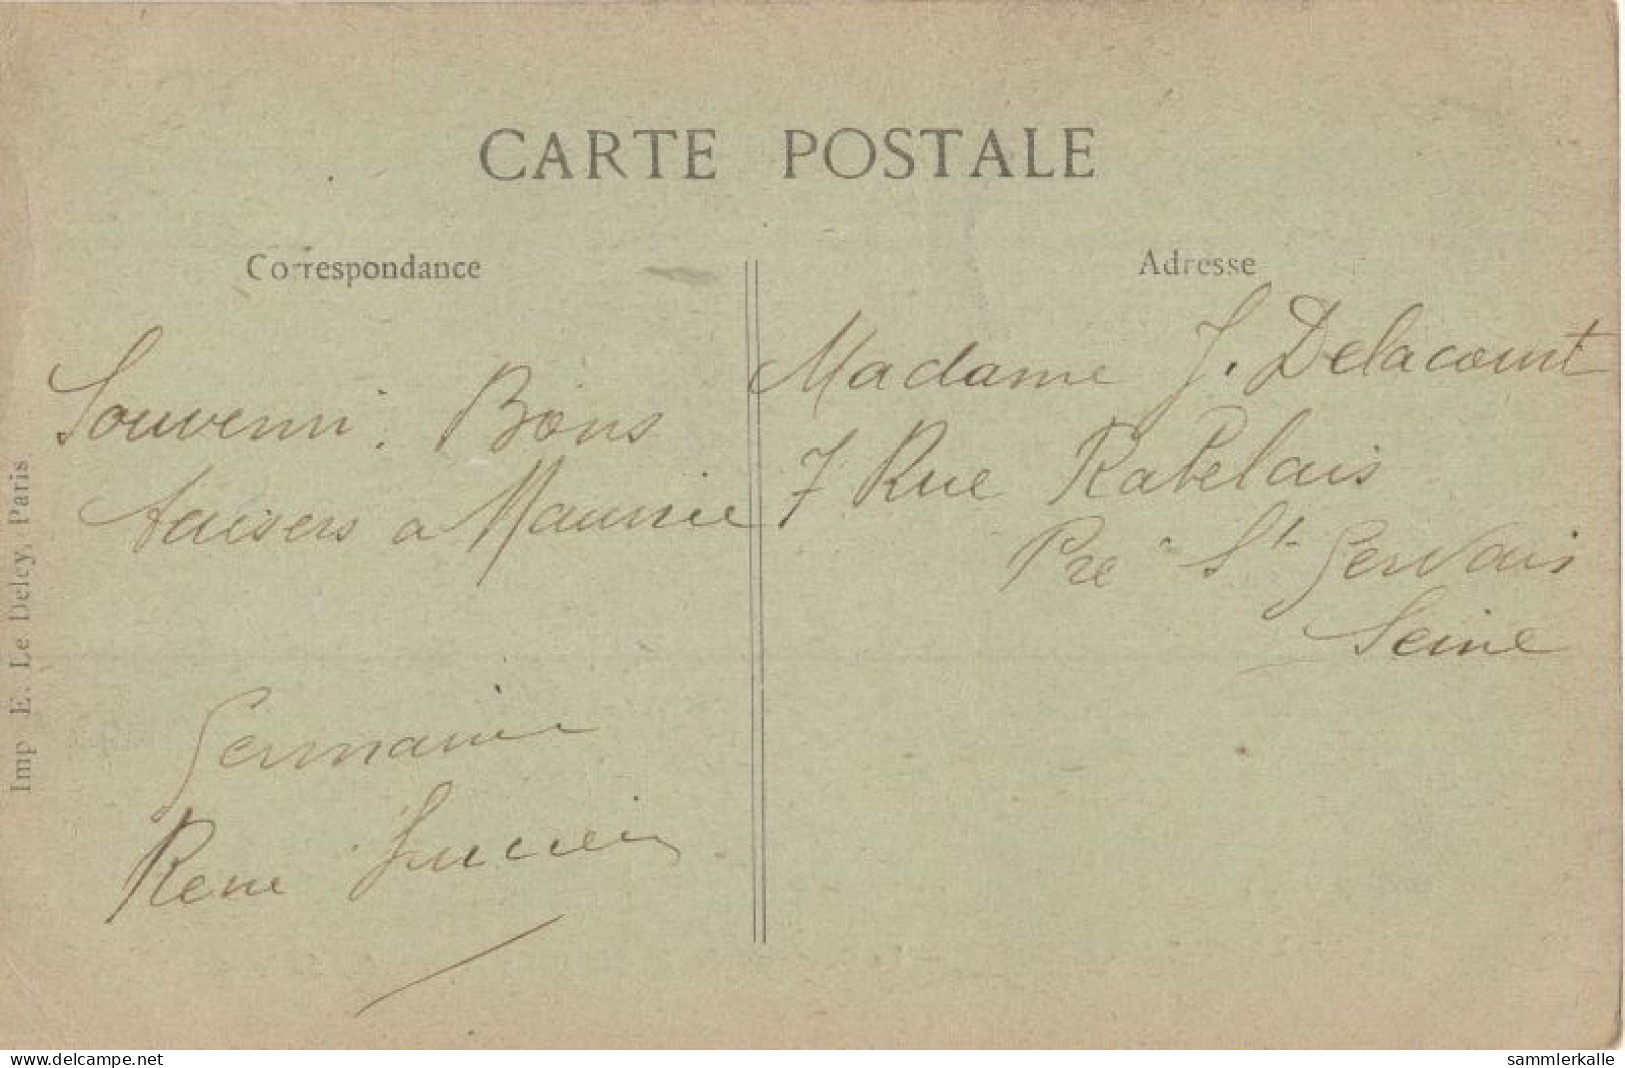 CARTE POSTALE
Correspondance
Adresse
Souvenir. Bons
baisers a Maurice
Germaine
Rene Lucien
Madame J. Delacourt
7 Rue Rabelais
Pré St Gervais
Seine
Imp E. Le Deley, Paris
www.delcampe.net
sammlerkalle